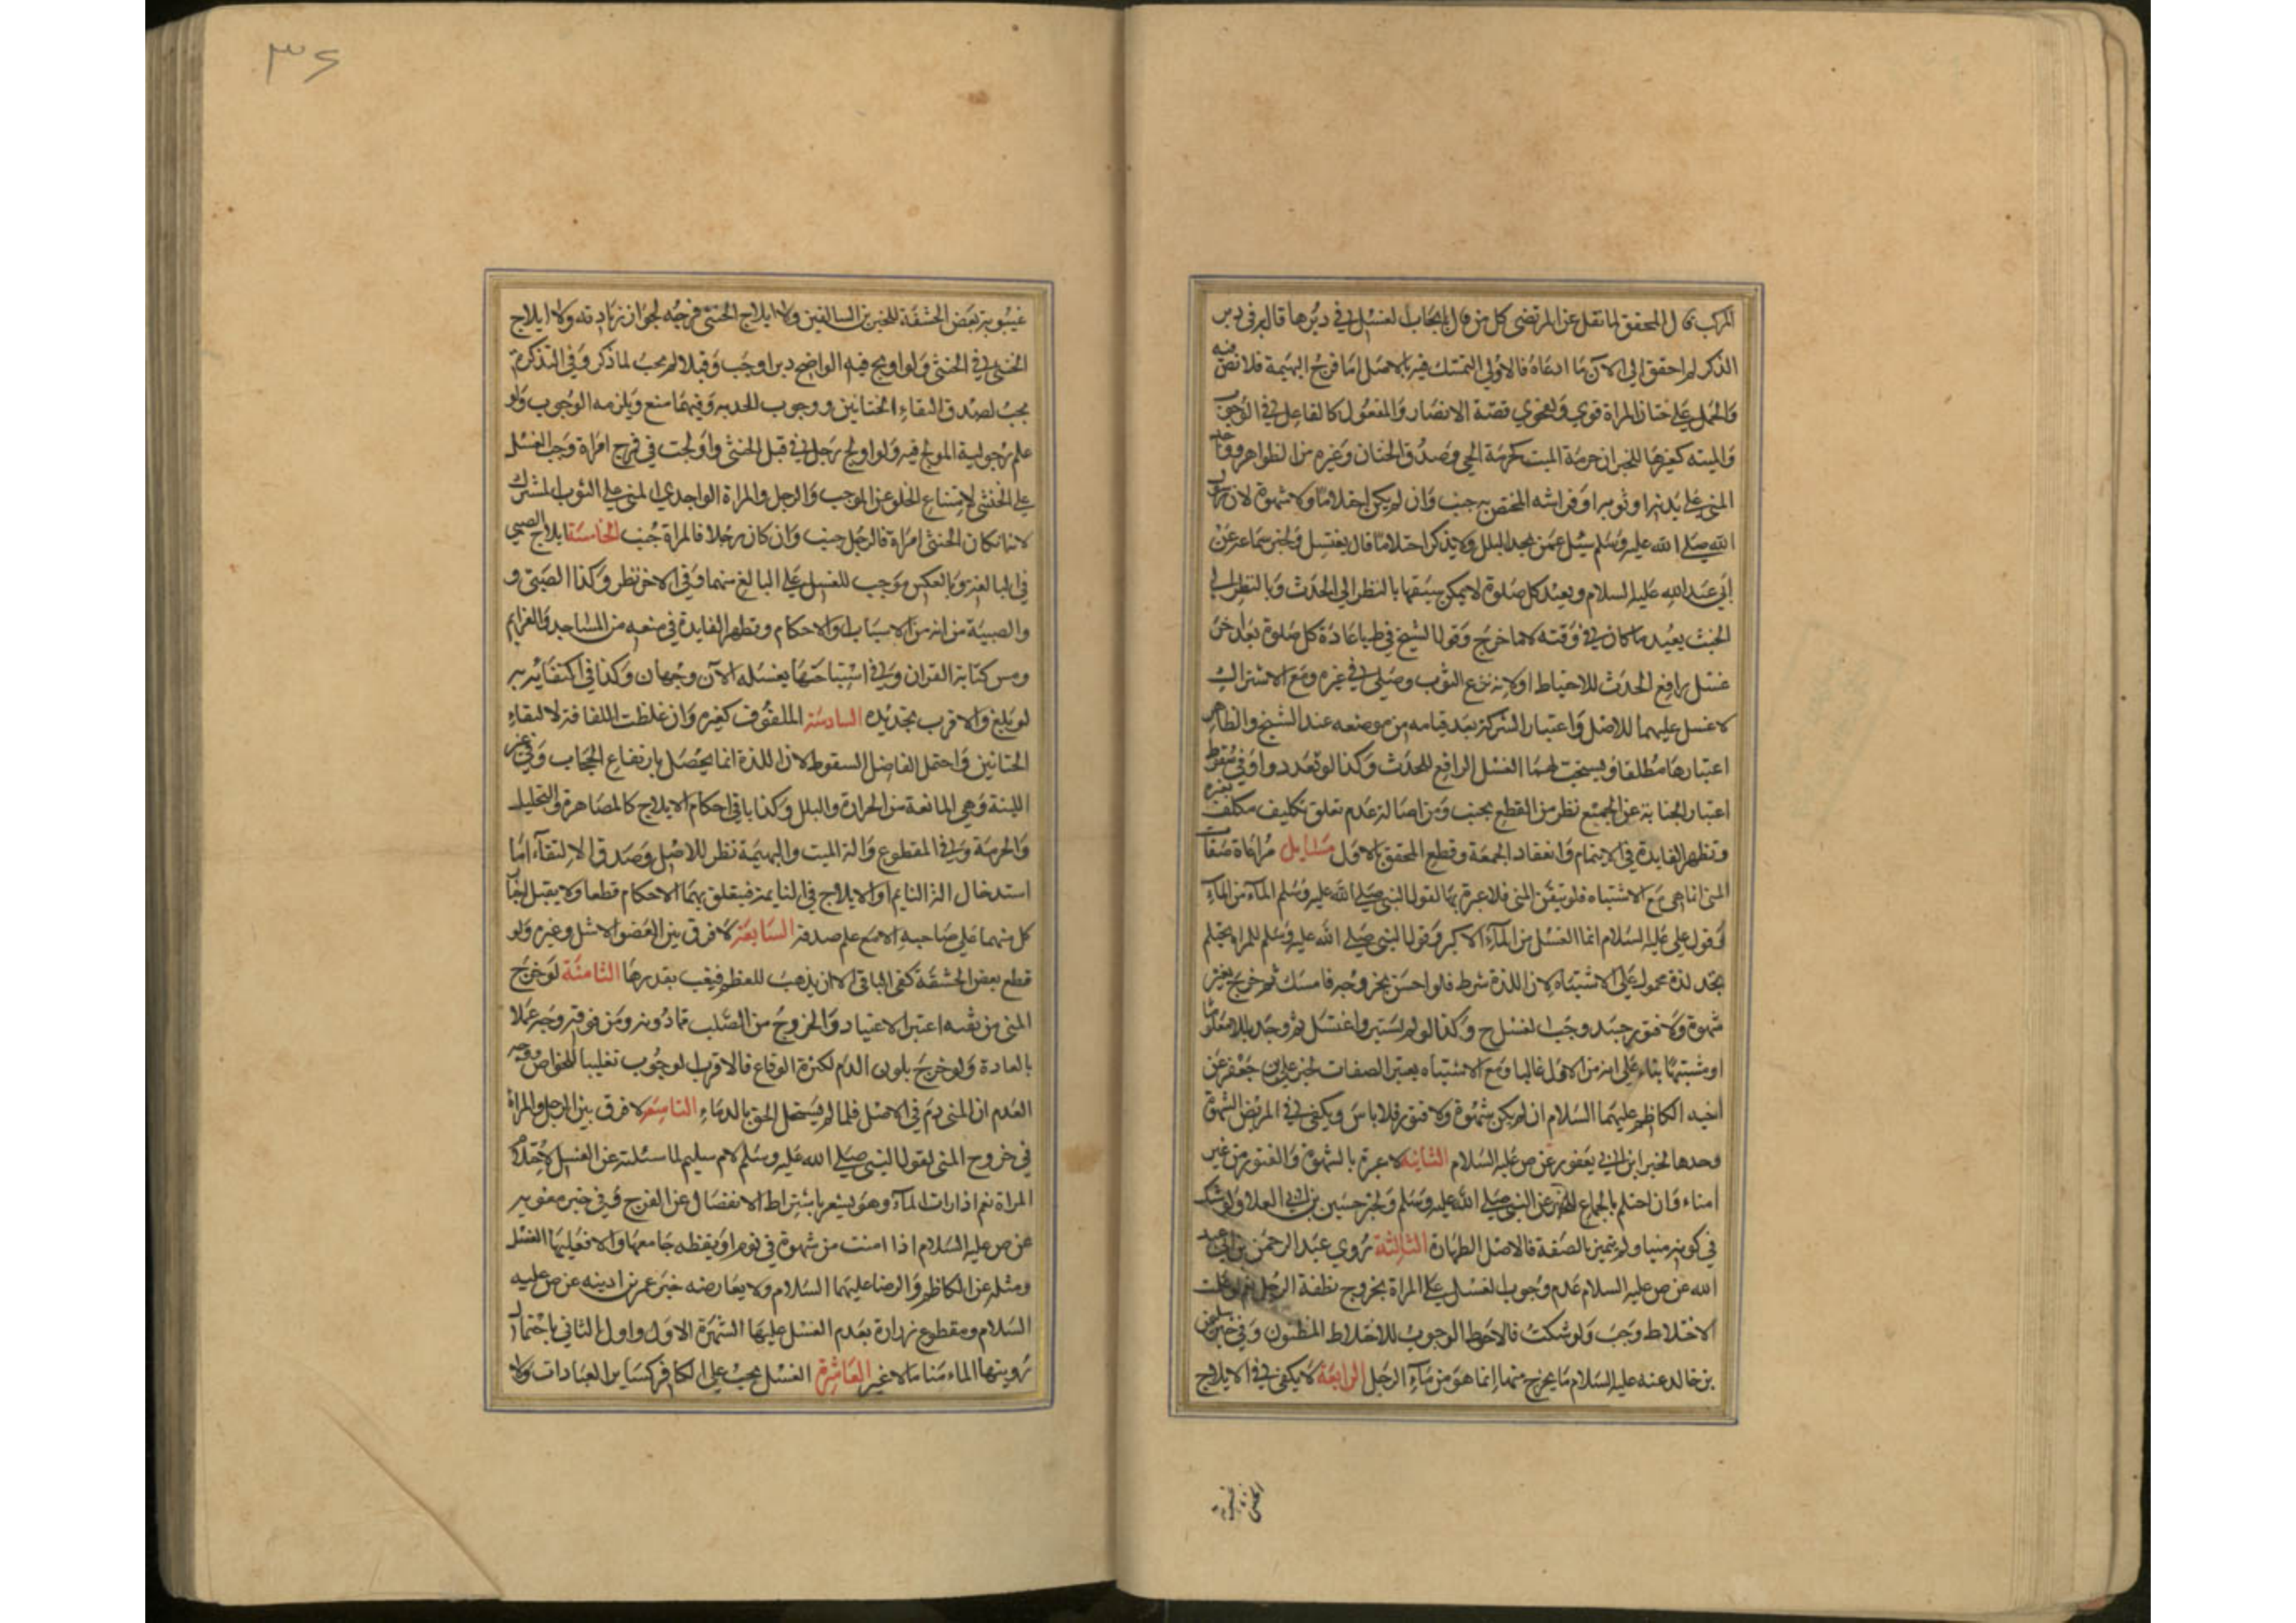 المركب قال المحقق لما نقل عن المرتضى كل من قال بايجاب الغسل في دبرها قال به في دبر
الذكر لم احقق الى الآن ما ادعاه فالاولى التمسك فيه بالاصل اما فرج البهيمة فلا نص فيه
والحمل على ختان المراة قوي ولفحوى قصة الانصار والمفعول كالفاعل في الوجوب
والميته كغيرها للخبر ان حرمة الميت كحرمة الحي وصدق الختان وغيره من الظواهر وواجد
المني على بدنه او ثوبه او فراشه المختص به جنب وان لم يكن احتلاما ولا شهوة لان رسول
الله صلى الله عليه وسلم سئل عمن يجد البلل ولا يذكر احتلاما قال يغتسل ولخبر سماعة عن
ابي عبد الله عليه السلام ويعيد كل صلوة لا يمكن سبقها بالنظر الى الحدث وبالنظر الى
الخبث يعيد ما كان في وقته لا ما خرج وقول الشيخ في ط باعادة كل صلوة بعد اخر
غسل رافع الحدث للاحتياط او لانه نزع الثوب وصلى في غيره ومع الاشتراك
لا غسل عليهما للاصل واعتبار الشركة بعد قيامه من موضعه عند الشيخ والظاهر
اعتبارها مطلقا ويستحب لهما الغسل الرافع للحدث وكذا لو تعددوا وفي سقوط
اعتبار الجنابة عن الجميع نظر من القطع بجنب ومن اصالة عدم تعلق تكليف مكلف بغيره
وتظهر الفايدة في الايتمام وانعقاد الجمعة وقطع المحقق بالاول مسايل مراعاة صفات
المني انما هي مع الاشتباه فلو تيقن المني فلا عبرة بها لقول النبي صلى الله عليه وسلم الماء من الماء
وقول علي عليه السلام انما الغسل من الماء الاكبر وقول النبي صلى الله عليه وسلم للمراة تحتلم
تجد لذة محمول على الاشتباه لا ان اللذة شرط فلو احس بخروجه فامسك ثم خرج بغير
شهوة ولا فتور جسد وجب الغسل ح وكذا لو لم يستبر واغتسل ثم وجد بللا معلوما
او مشتبها بناء على انه من الاول غالبا ومع الاشتباه يعتبر الصفات لخبر علي بن جعفر عن
اخيه الكاظم عليهما السلام ان لم يكن شهوة ولا فتور فلا باس ويكفي في المريض الشهوة
وحدها لخبر ابن ابي يعفور عن ص عليه السلام الثانية لا عبرة بالشهوة والفتور من غير
امناء وان احتلم بالجماع للخبر عن النبي صلى الله عليه وسلم ولخبر حسين بن ابي العلا ولو شك
في كونه منيا ولم يتميز بالصفة فالاصل الطهارة الثالثة روي عبد الرحمن بن ابي عبد
الله عن ص عليه السلام عدم وجوب الغسل على المراة بخروج نطفة الرجل نعم لو علمت
الاختلاط وجب ولو شكت فالاحوط الوجوب للاختلاط المظنون وفي خبر سليمن
بن خالد عنه عليه السلام ما يخرج منها انما هو من ماء الرجل الرابعة لا يكفي في الايلاج
٣٦
غيبوبة بعض الحشفة للخبرين السالفين ولا ايلاج الخنثى فرجه لجواز زيادته ولا ايلاج
الخنثى في الخنثى ولو اولج فيه الواضح دبرا وجب وقبلا لم يجب لما ذكر وفي التذكرة
يجب لصدق التقاء الختانين ووجوب الحد به وفيهما منع ويلزمه الوجوب ولو
علم رجولية المولج فيه ولو اولج رجل في قبل الخنثى واولجت في فرج امراة وجب الغسل
على الخنثى لامتناع الخلو عن الموجب والرجل والمراة الواجدي المني على الثوب المشترك
لانه ان كان الخنثى امراة فالرجل جنب وان كان رجلا فالمراة جنب الخامسة ايلاج الصبي
في البالغة وبالعكس موجب للغسل على البالغ منهما وفي الاخر نظر وكذا الصبي و
والصبية من انه من الاسباب والاحكام وتظهر الفايدة في منعه من المساجد والعزايم
ومس كتابة القران وفي استباحتها بغسله الآن وجهان وكذا في اكتفايه به
لو بلغ والاقرب تجديده السادسة الملفوف كغيره وان غلظت اللفافة لالتقاء
الختانين واحتمل الفاضل السقوط لان اللذة انما يحصل بارتفاع الحجاب وفي غير
اللينة وهي المانعة من الحرارة والبلل وكذا باقي احكام الايلاج كالمصاهرة والتحليل
والحرمة وفي المقطوع والة الميت والبهيمة نظر للاصل وصدق الالتقاء اما
استدخال الة النايم او الايلاج في النايمة فيتعلق بهما الاحكام قطعا ولا يقبل انكار
كل منهما على صاحبه الا مع علم صدقه السابعة لا فرق بين العضو الاشل وغيره ولو
قطع بعض الحشفة كفى الباقي الا ان يذهب المعظم فيغيب بقدرها الثامنة لو خرج
المني من ثقبه اعتبر الاعتياد والخروج من الصلب فما دونه ومن فوقه وجه عملا
بالعادة ولو خرج بلون الدم لكثرة الوقاع فالاقرب الوجوب تغليبا للخواص ووجه
العدم ان المني دم في الاصل فلما لم يستحل الحق بالدماء التاسعة لا فرق بين الرجل والمراة
في خروج المني لقول النبي صلى الله عليه وسلم لام سليم لما سئلته عن الغسل لاحتلام
المراة نعم اذا رات الماء وهو يشعر باشتراط الانفصال عن الفرج وفي خبر معويه
عن ص عليه السلام اذا امنت من شهوة في نوم او يقظه جامعها والا فعليها الغسل
ومثله عن الكاظم والرضا عليهما السلام ولا يعارضه خبر عمر بن اذينه عن ص عليه
السلام ومقطوع زرارة بعدم الغسل عليها لشهرة الاول واول الثاني باحتمال
رويتها الماء مناما لا غير العاشرة الغسل يجب على الكافر كساير العبادات ولا